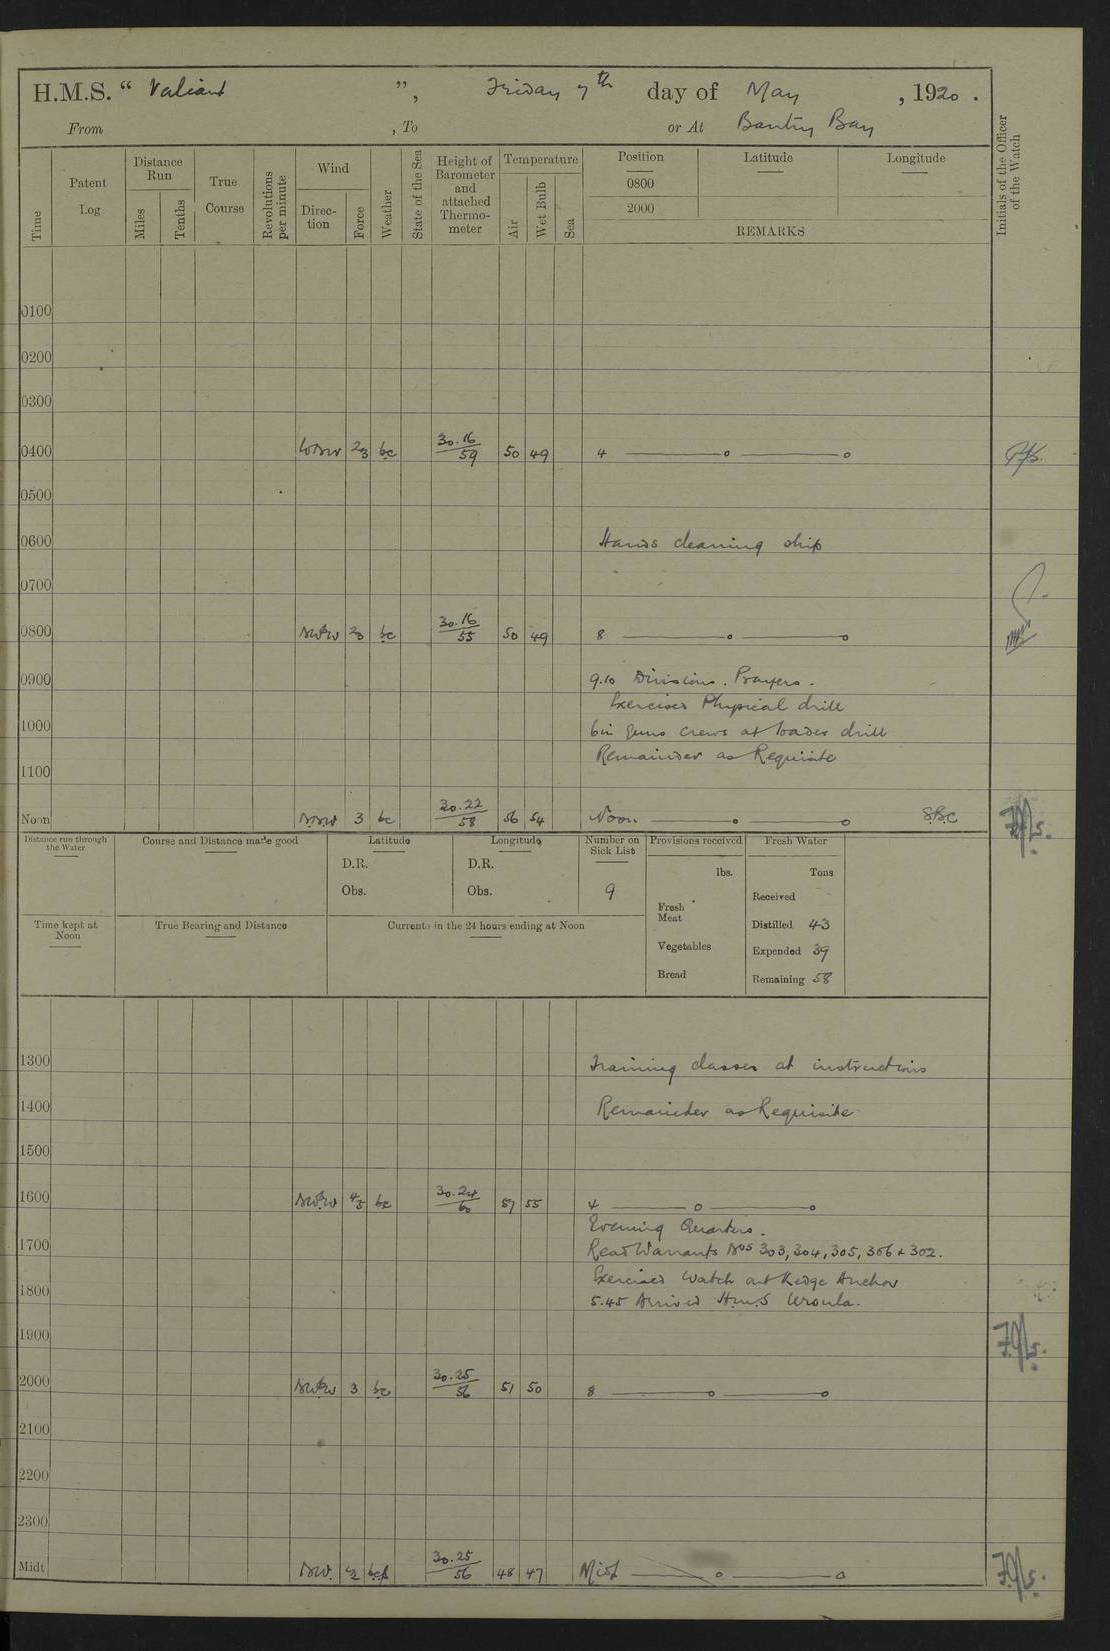 H.M.S. “ Valiant ”, Friday 7th day of May , 1920 .
From , To or At Bantry Bay
Time
Patent Log
Distance Run
Miles
Tenths
True Course
Revolutions per minute
Wind
Direc-tion
Force
Weather
State of the Sea
Height of Barometer and attached Thermo-meter
Temperature
Air
Wet Bulb
Sea
Position Latitude Longitude
0800
2000
REMARKS
Initials of the Officer of the Watch
0100
0200
0300
0400 2/3 bc 30.16/59 50 49 4
0500
0600 Hands cleaning ship
0700
0800 2/3 bc 30.16/55 50 49 8
0900 9.10 Divisions. Prayers.
Exercised Physical drill
1000 6in Guns crews at loader drill
Remainder as Requisite
1100
Noon 3 bc 30.22/58 56 54 Noon
Distance run through the Water
Course and Distance made good
Latitude
D.R.
Obs.
Longitude
D.R.
Obs.
Number on Sick List
9
Provisions received
lbs.
Fresh Meat
Vegetables
Bread
Fresh Water
Tons
Received
Distilled 43
Expended 39
Remaining 58
Time kept at Noon
True Bearing and Distance
Currents in the 24 hours ending at Noon
1300 Training classes at instructions
1400 Remainder as Requisite
1500
1600 bc 30.24/60 55 4
Evening Quarters.
1700 Read Warrants Nos 303, 304, 305, 306 & 302.
Exercised Watch out Kedge Anchor
1800 5.45 Arrived H.M.S Ursula.
1900
2000 3 bc 30.25/56 51 50 8
2100
2200
2300
Midt SW. 30.25/56 48 47 Midt